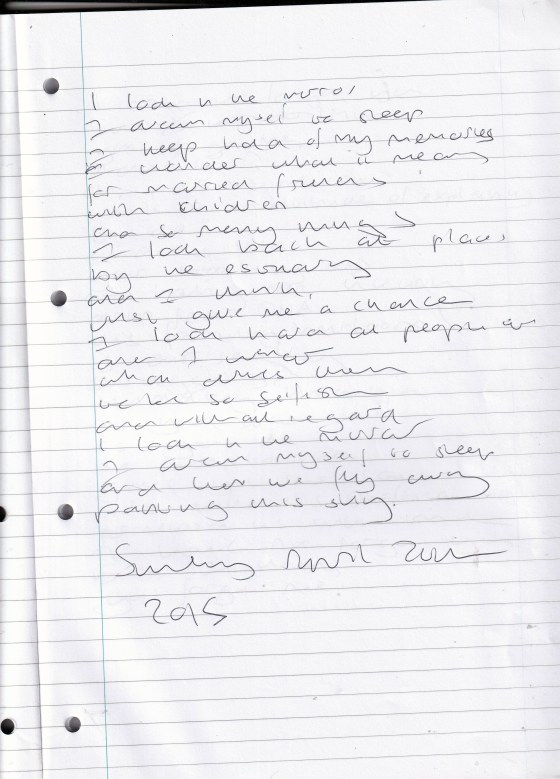 I look in the mirror
I dream myself to sleep
I keep hold of my memories
& wonder what it means
for married friends
with children
and so many things
I look back at places
by the estuary
and I think,
just give me a chance
I look hard at people
and I wonder
what drives them
to be so selfish
and without regard
I look in the mirror
I dream myself to sleep
and then we fly away
painting this sky.
Sunday April
2015